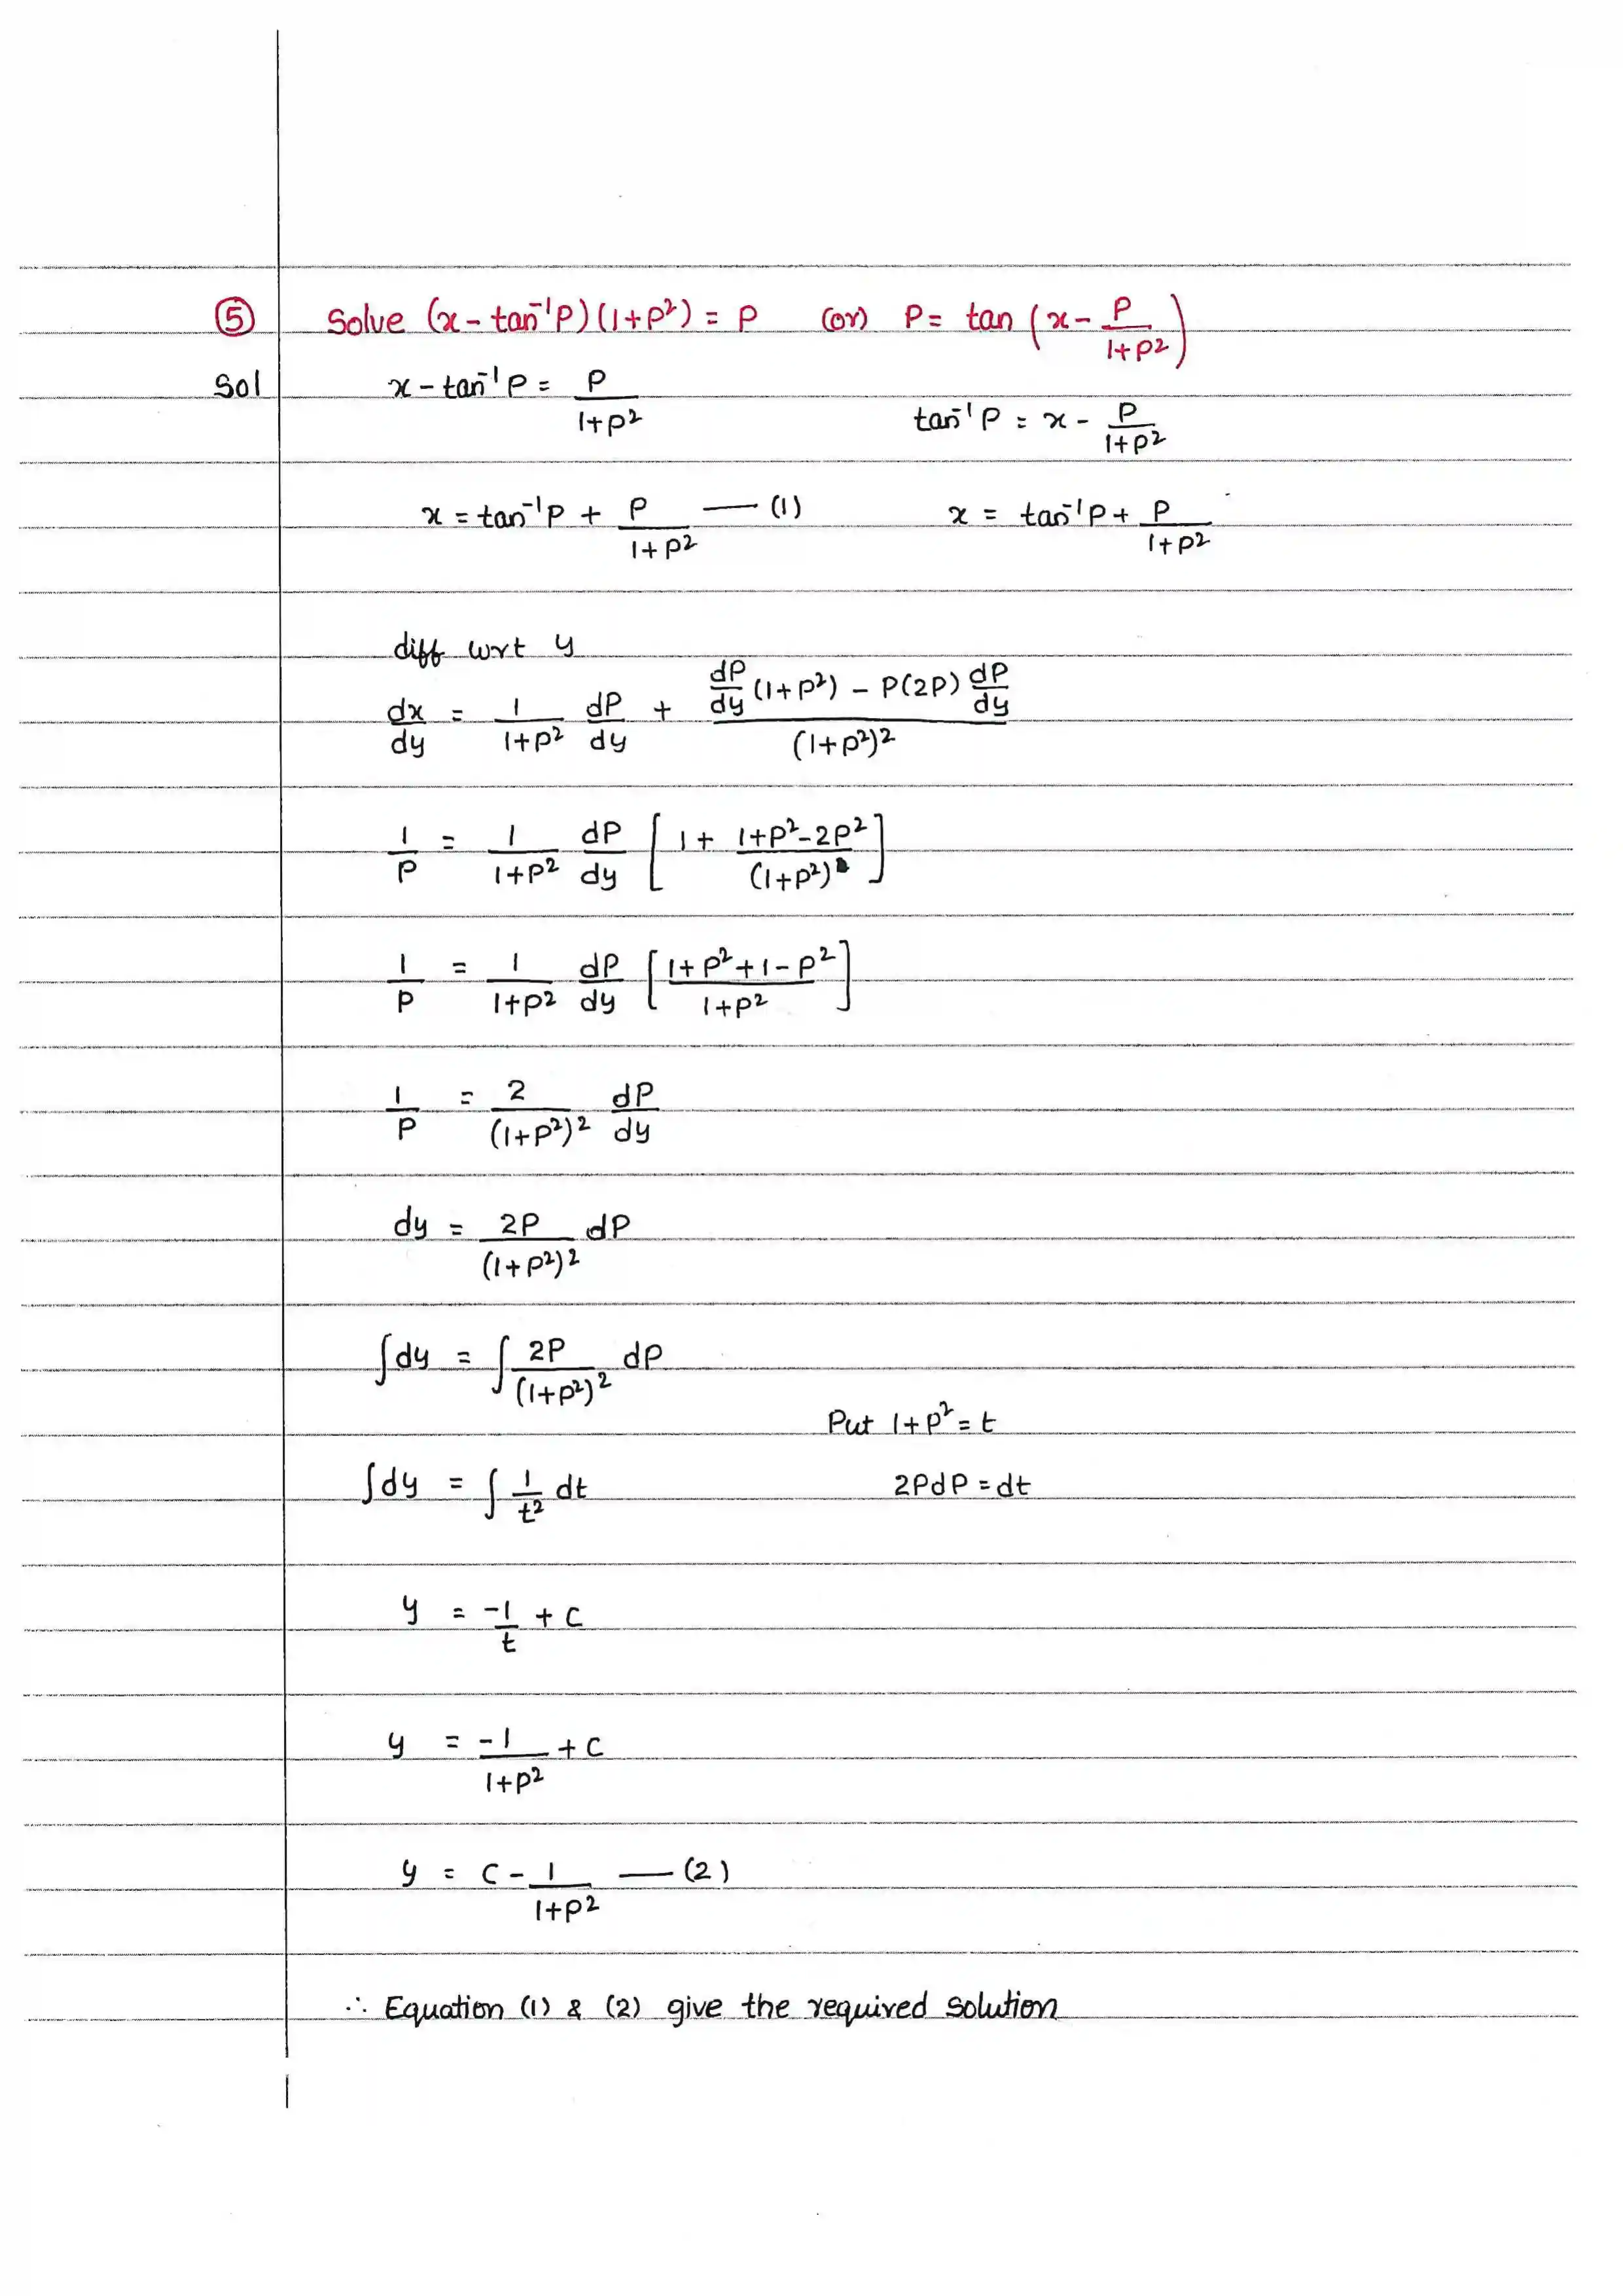 ⑤ Solve (x - tan⁻¹P)(1+P²) = P (or) P = tan (x - P/(1+P²))
Sol x - tan⁻¹P = P/(1+P²) tan⁻¹P = x - P/(1+P²)
x = tan⁻¹P + P/(1+P²) — (1) x = tan⁻¹P + P/(1+P²)
diff wrt y
dx/dy = 1/(1+P²) dP/dy + (dP/dy (1+P²) - P(2P) dP/dy)/(1+P²)²
1/P = 1/(1+P²) dP/dy [1 + (1+P²-2P²)/(1+P²)]
1/P = 1/(1+P²) dP/dy [(1+P²+1-P²)/(1+P²)]
1/P = 2/(1+P²)² dP/dy
dy = 2P/(1+P²)² dP
∫dy = ∫ 2P/(1+P²)² dP
Put 1+P² = t
∫dy = ∫ 1/t² dt 2PdP = dt
y = -1/t + C
y = -1/(1+P²) + C
y = C - 1/(1+P²) — (2)
∴ Equation (1) & (2) give the required solution